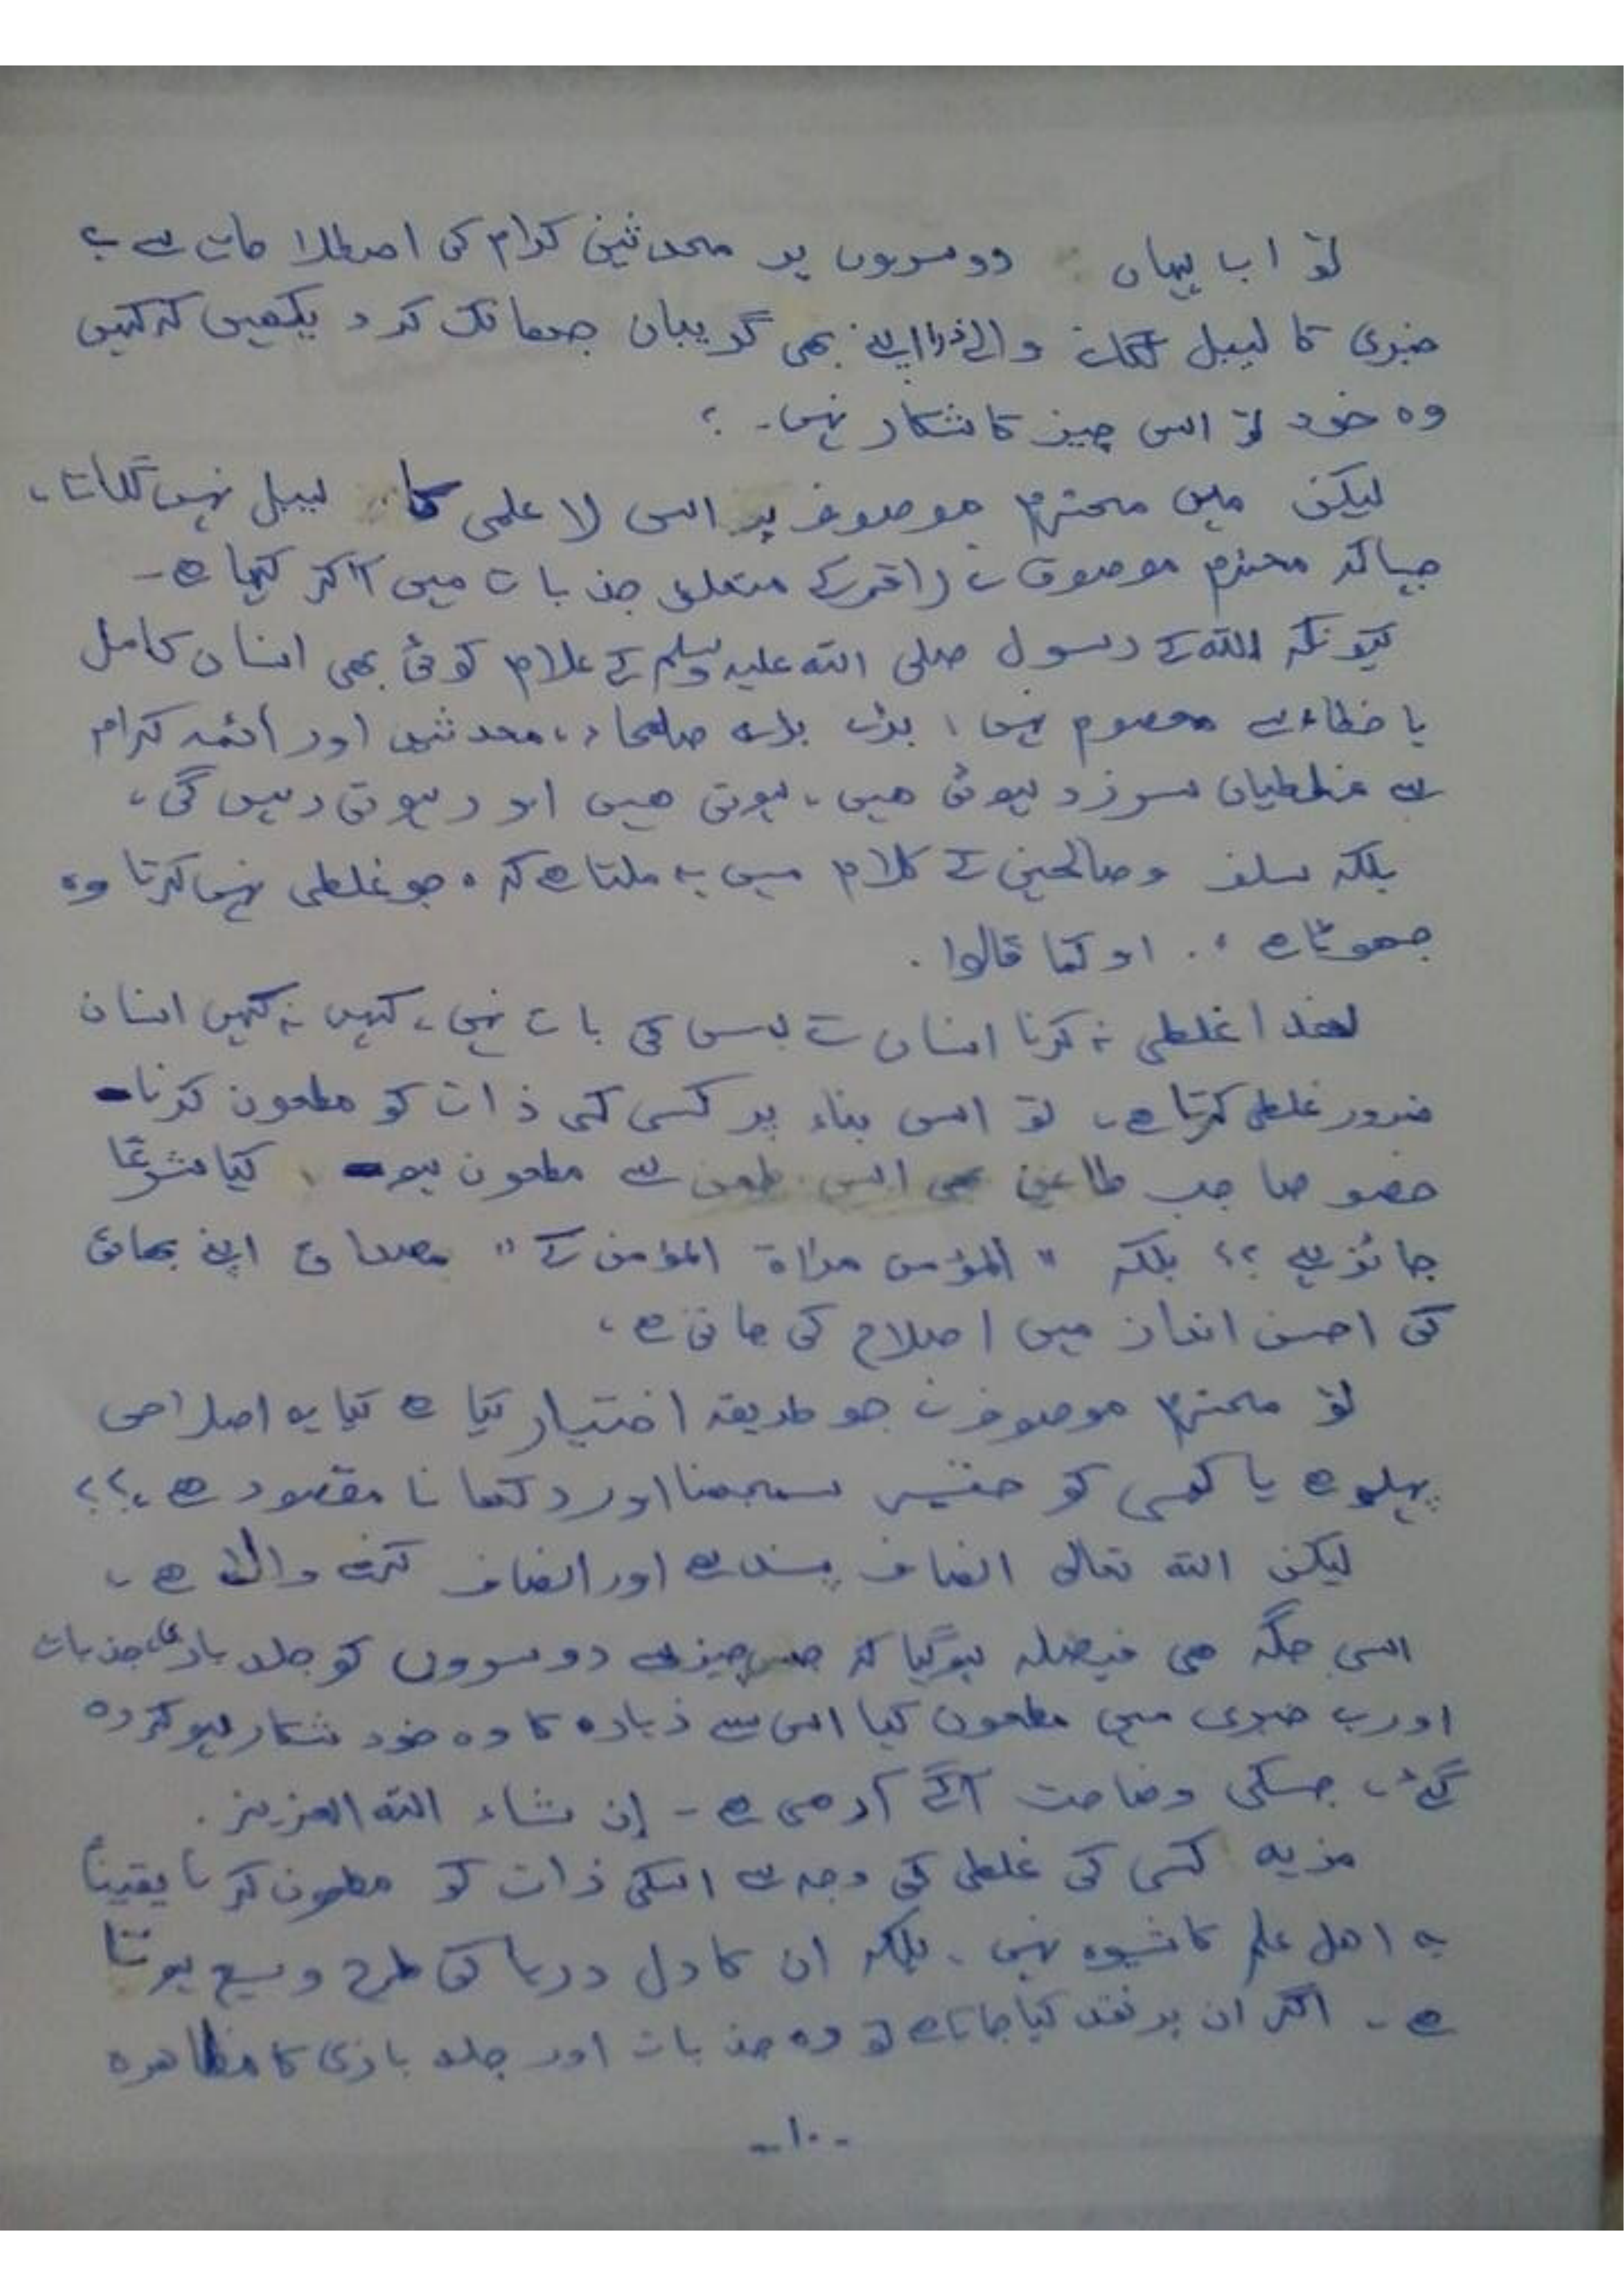 تو اب یہاں دوسروں پر محدثین کرام کی اصطلاحات سے بے
خبری کا لیبل لگانے والے ذرا اپنے بھی گریبان جھانک کر دیکھیں کہ کہیں
وہ خود تو اسی چیز کا شکار نہیں۔؟
لیکن میں محترم موصوف پر اس لا علمی کا لیبل نہیں لگاتا،
جیسا کہ محترم موصوف نے راقم کے متعلق جذبات میں آکر کہا ہے۔
کیونکہ اللہ کے رسول صلی اللہ علیہ وسلم کے علاہ کوئی بھی انسان کامل
یا خطاء سے معصوم نہیں، بڑے بڑے صلحاء، محدثین اور أئمہ کرام
سے غلطیاں سرزد ہوئی ھیں، ہوتی ھیں اور ہوتی رہیں گی،
بلکہ سلف وصالحین کے کلام میں یہ ملتا ہے کہ ، جو غلطی نہیں کرتا وہ
جھوٹا ہے ،. او کما قالوا .
لھذا غلطی نہ کرنا انسان کے بس کی بات نہیں، کہیں نہ کہیں انسان
ضرور غلطی کرتا ہے، تو اس بناء پر کسی کی ذات کو مطعون کرنا
خصوصا جب طاعن بھی اسی طعن سے مطعون ہو، کیا شرعًا
جائز ہے؟؟ بلکہ "المؤمن مرٰاۃ المؤمن کے" مصداق اپنے بھائی
کی احسن انداز میں اصلاح کی جاتی ہے،
تو محترم موصوف نے جو طریقہ اختیار کیا ہے کیا یہ اصلاحی
پہلو ہے یا کسی کو حقیر سمجھنا اور دکھانا مقصود ہے،؟؟
لیکن اللہ تعالی انصاف پسند ہے اور انصاف کرنے والا ہے،
اسی جگہ ھی فیصلہ ہوگیا کہ جس چیز سے دوسروں کو جلد بازی، جذبات
اور بے خبری میں مطعون کیا اس سے زیادہ کا وہ خود شکار ہو کر رہ
گئے، جسکی وضاحت آگے آرھی ہے - إن شاء اللہ العزیز.
مزید کسی کی غلطی کی وجہ سے اسکی ذات کو مطعون کرنا یقیناً
یہ اھل علم کا شیوہ نہیں، بلکہ ان کا دل دریا کی طرح وسیع ہوتا
ہے۔ اگر ان پر نقد کیا جاتا ہے تو وہ جذبات اور جلد بازی کا مظاھرہ
-۱۰-